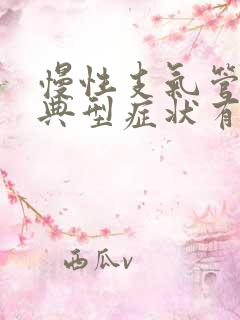 慢性支氣管
典型症状有
西瓜v